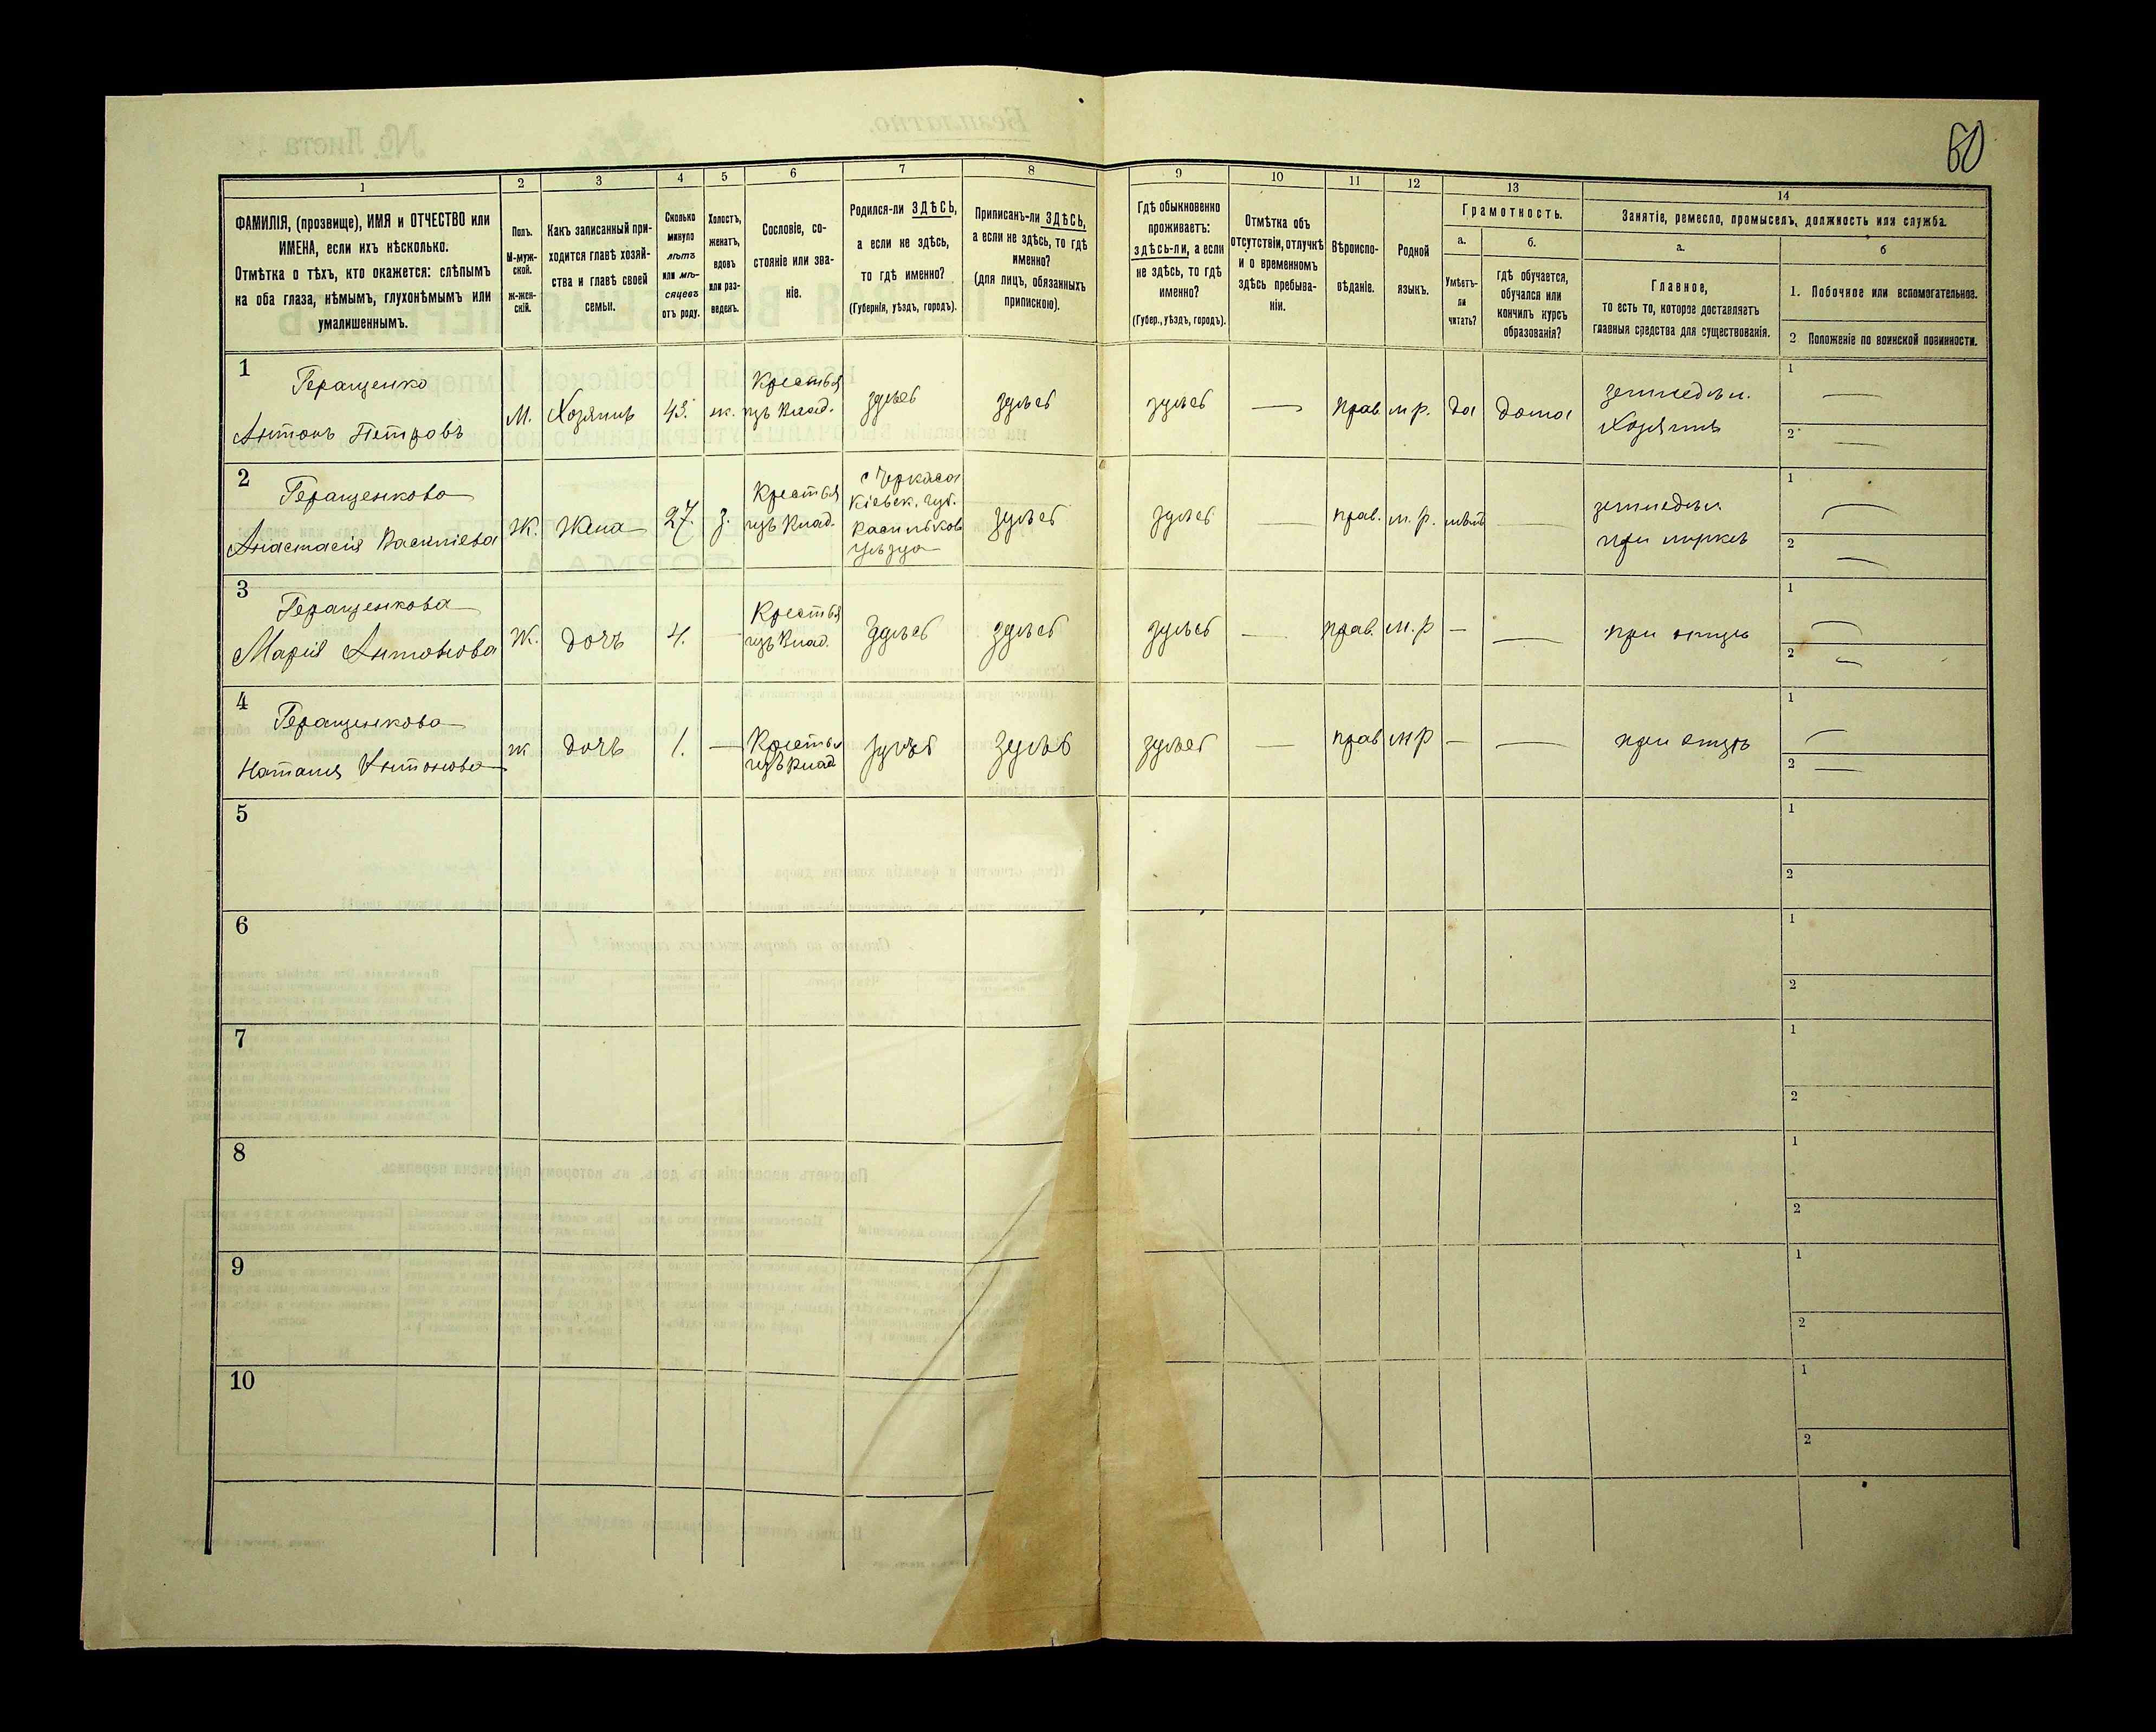 60
1 2 3 4 5 6 7 8 9 10 11 12 13 14
ФАМИЛІЯ, (прозвище), ИМЯ и ОТЧЕСТВО или
ИМЕНА, если ихъ нѣсколько.
Отмѣтка о тѣхъ, кто окажется: слѣпымъ
на оба глаза, нѣмымъ, глухонѣмымъ или
умалишеннымъ.
Полъ.
М-муж-
ской.
ж-жен-
скій.
Какъ записанный при-
ходится главѣ хозяй-
ства и главѣ своей
семьи.
Сколько
минуло
лѣтъ
или мѣ-
сяцевъ
отъ роду.
Холостъ,
женатъ,
вдовъ
или раз-
веденъ.
Сословіе, со-
стояніе или зва-
ніе.
Родился-ли ЗДѢСЬ,
а если не здѣсь,
то гдѣ именно?
(Губернія, уѣздъ, городъ).
Приписанъ-ли ЗДѢСЬ,
а если не здѣсь, то гдѣ
именно?
(для лицъ, обязанныхъ
припискою).
Гдѣ обыкновенно
проживаетъ:
здѣсь-ли, а если
не здѣсь, то гдѣ
именно?
(Губер., уѣздъ, городъ).
Отмѣтка объ
отсутствіи, отлучкѣ
и о временномъ
здѣсь пребыва-
ніи.
Вѣроиспо-
вѣданіе.
Родной
языкъ.
Грамотность.
а.
Умѣетъ-
ли
читать?
б.
гдѣ обучается,
обучался или
кончилъ курсъ
образованія?
Занятіе, ремесло, промыселъ, должность или служба.
а.
Главное,
то есть то, которое доставляетъ
главныя средства для существованія.
б
1. Побочное или вспомогательное.
2 Положеніе по воинской повинности.
1
Геращенко
Антонъ Петровъ
М.
Хозяинъ
43.
ж.
Крестья
изъ Влад.
здѣсь
здѣсь
здѣсь
—
прав.
м р.
да
дома
земледѣл.
Хозяинъ
1 —
2 —
2
Геращенкова
Анастасія Василіева
Ж.
Жена
27.
з.
Крестья
изъ Влад.
с Черкаса
Кіевск. губ.
Васильков
уѣзда
здѣсь
здѣсь
—
прав.
м. р.
нѣтъ
—
земледѣл.
при мужѣ
1 —
2 —
3
Геращенкова
Марія Антонова
Ж.
дочь
4.
—
Крестья
изъ Влад.
здѣсь
здѣсь
здѣсь
—
прав.
м. р
—
—
при отцѣ
1 —
2 —
4
Геращенкова
Наталия Антонова
ж
дочь
1.
—
Крестья
изъ Влад
здѣсь
здѣсь
здѣсь
—
прав
м р
—
—
при отцѣ
1 —
2 —
5
1
2
6
1
2
7
1
2
8
1
2
9
1
2
10
1
2